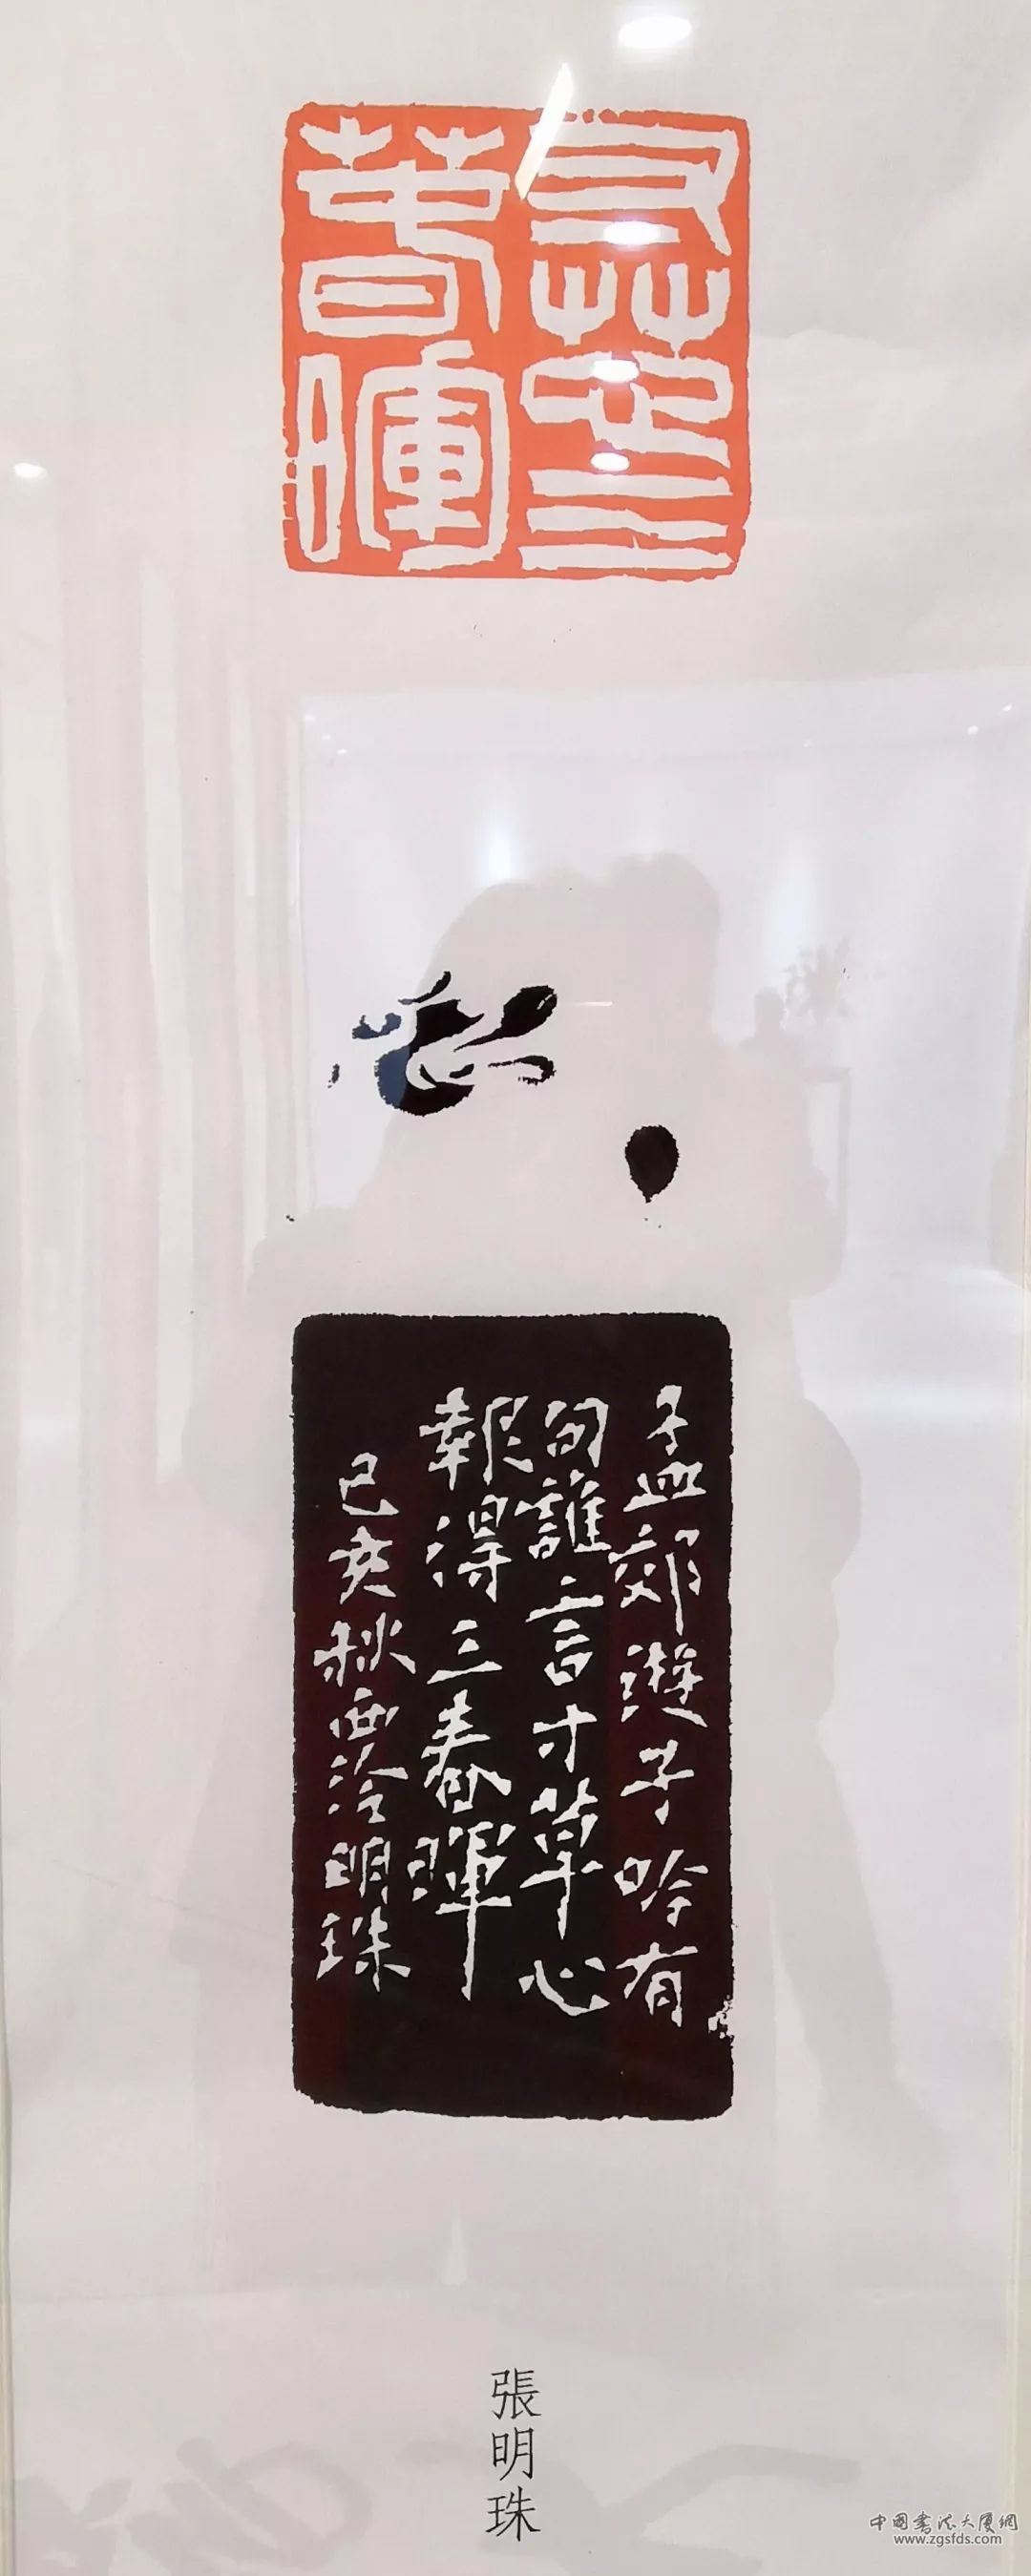 寸艸心三
春暉
孟郊遊子吟有
句誰言寸草心
報得三春暉
己亥秋西泠明珠
張明珠
中国書法大厦網
www.zgsfds.com